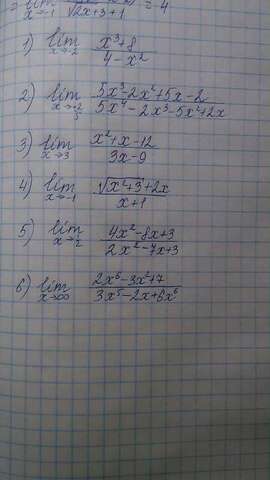 x→-1 √2x+3+1 = 4
1) lim x→-2 (x³+8)/(4-x²)
2) lim (5x³-2x²+5x-2)/(5x⁴-2x³-5x²+2x)
3) lim x→3 (x²+x-12)/(3x-9)
4) lim x→-1 (√x²+3+2x)/(x+1)
5) lim (4x²-8x+3)/(2x²-7x+3)
6) lim x→∞ (2x⁶-3x²+7)/(3x⁵-2x+6x⁶)